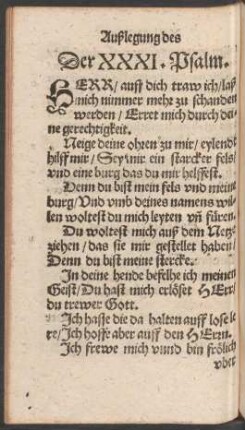 Außlegung des
Der XXXI. Psalm.
HERR/ auff dich traw ich/ laß
mich nimmer mehr zu schanden
werden/ Erret mich durch dei
ne gerechtigkeit.
Neige deine ohren zu mir/ eylende
hilff mir/ Sey mir ein starcker fels/
vnd eine burg das du mir helffest.
Denn du bist mein fels vnd meine
burg/ Vnd vmb deines namens wil
len woltest du mich leyten vñ füren.
Du woltest mich auß dem Netze
ziehen/ das sie mir gestellet haben/
Denn du bist meine stercke.
In deine hende befelhe ich meinen
Geist/ Du hast mich erlöset HErr/
du trewer Gott.
Ich hasse die da halten auff lose le
re/ Ich hoffe aber auff den HErrn.
Ich frewe mich vnnd bin frölich
vber